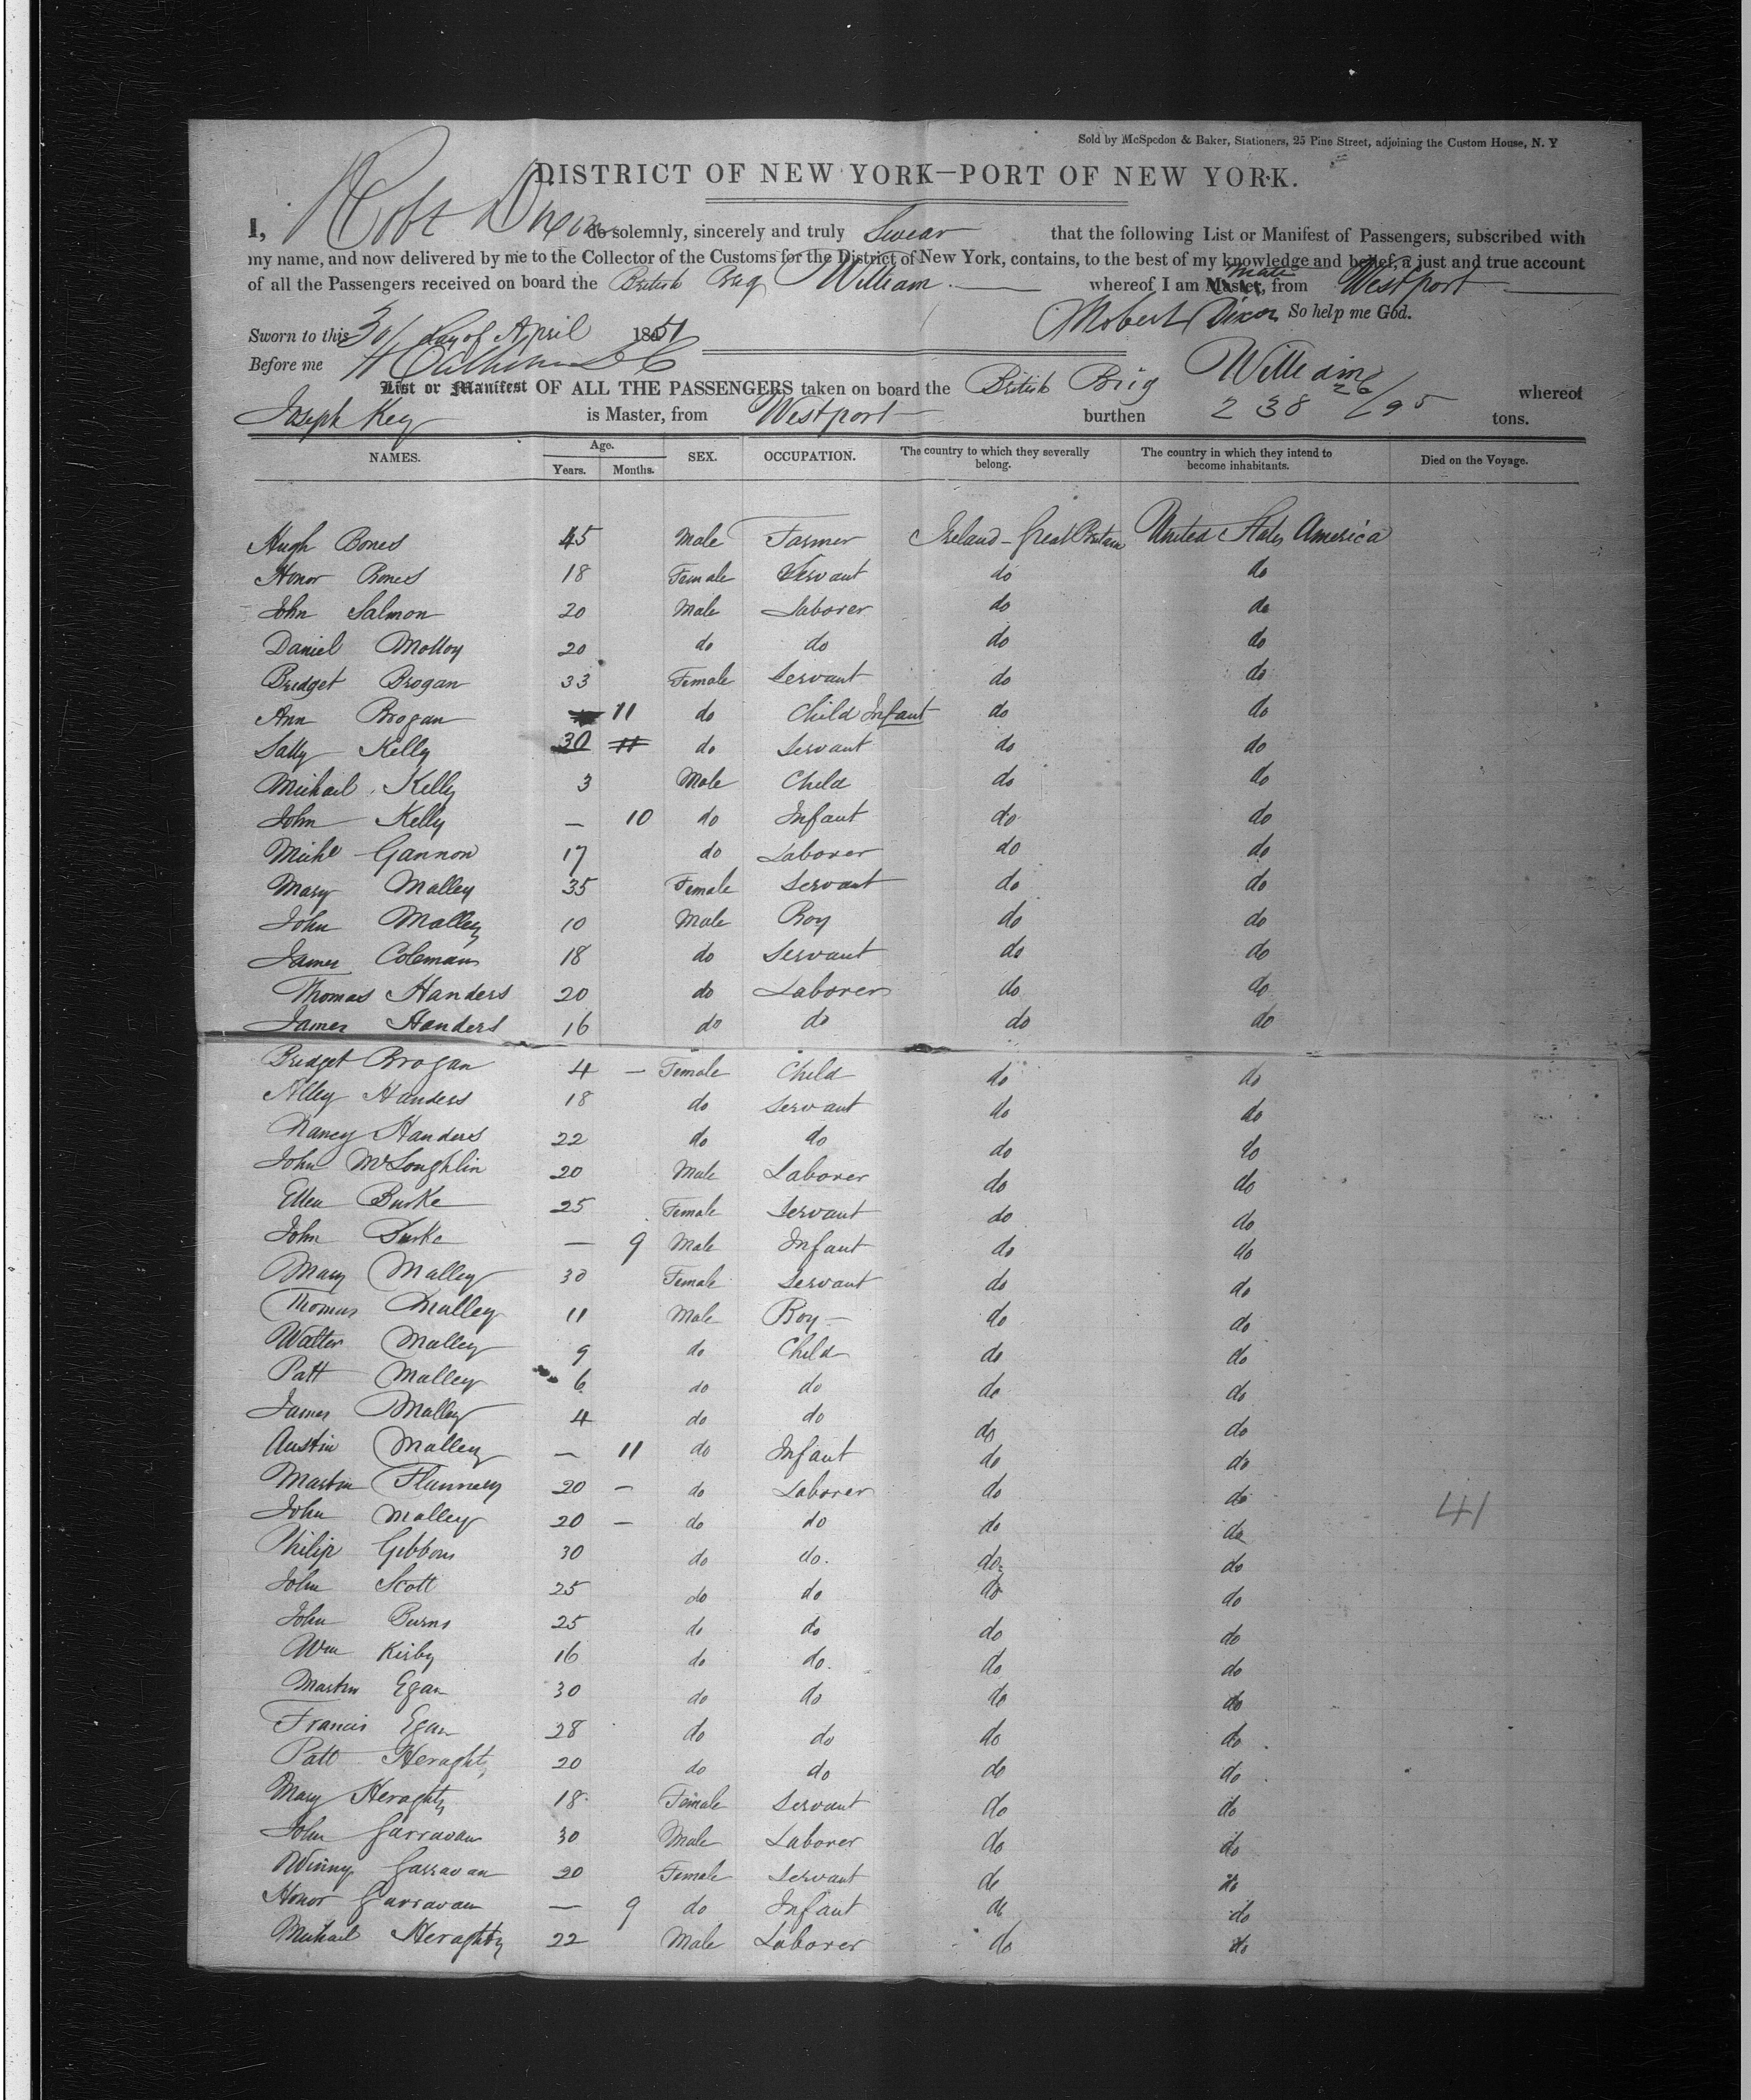 Sold by McSpedon & Baker, Stationers, 25 Pine Street, adjoining the Custom House, N. Y
DISTRICT OF NEW YORK—PORT OF NEW YORK.
I, Robt Dixon do solemnly, sincerely and truly Swear that the following List or Manifest of Passengers, subscribed with
my name, and now delivered by me to the Collector of the Customs for the District of New York, contains, to the best of my knowledge and belief, a just and true account
of all the Passengers received on board the British Brig William whereof I am Master, Mate from Westport
Robert Dixon So help me God.
Sworn to this 30/ day of April 1851
Before me
List or Manifest OF ALL THE PASSENGERS taken on board the British Brig William whereof
Joseph Key is Master, from Westport burthen 238 26/95 tons.
NAMES. Age. Years. Months. SEX. OCCUPATION. The country to which they severally belong. The country in which they intend to become inhabitants. Died on the Voyage.
Hugh Bones 45 Male Farmer Ireland - Great Britain United States America
Honor Bones 18 Female Servant do do
John Salmon 20 Male Laborer do do
Daniel Molloy 20 do do do do
Bridget Brogan 33 Female Servant do do
Ann Brogan 11 do Child Infant do do
Sally Kelly 30 11 do Servant do do
Michail Kelly 3 Male Child do do
John Kelly — 10 do Infant do do
Michl Gannon 17 do Laborer do do
Mary Malley 35 Female Servant do do
John Malley 10 Male Boy do do
James Coleman 18 do Servant do do
Thomas Handers 20 do Laborer do do
James Handers 16 do do do do
Bridget Brogan 4 — Female Child do do
Alley Handers 18 do Servant do do
Nancy Handers 22 do do do do
John McLoughlin 20 Male Laborer do do
Ellen Burke 25 Female Servant do do
John Burke — 9 Male Infant do do
Mary Malley 30 Female Servant do do
Thomas Malley 11 Male Boy — do do
Walter Malley 9 do Child do do
Patt Malley 6 do do do do
James Malley 4 do do do do
Austin Malley — 11 do Infant do do
Martin Flannery 20 — do Laborer do do
John Malley 20 — do do do do
41
Philip Gibbons 30 do do. do do
John Scott 25 do do do do
John Burns 25 do do do do
Wm Kirby 16 do do. do do
Martin Egan 30 do do do do
Francis Egan 28 do do do do
Patt Heraghty 20 do do do do
Mary Heraghty 18 Female Servant do do
John Garravan 30 Male Laborer do do
Winny Garravan 20 Female Servant do do
Honor Garravan — 9 do Infant do do
Michail Heraghty 22 Male Laborer do do